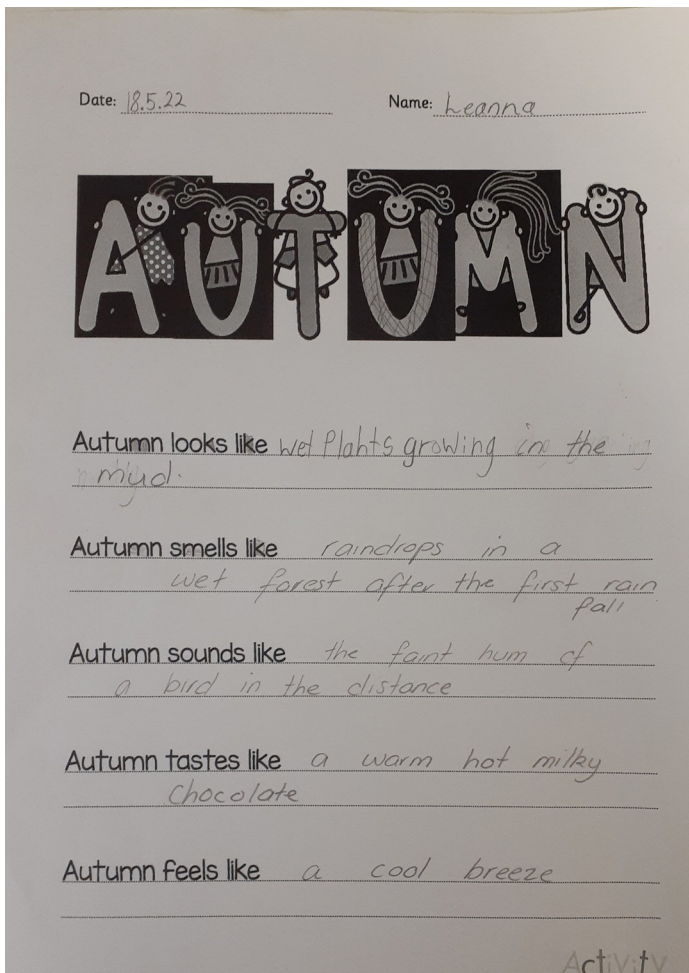 Date: 18.5.22 Name: Leanna
AUTUMN
Autumn looks like wet plants growing in the
mud.
Autumn smells like raindrops in a
wet forest after the first rain
fall
Autumn sounds like the faint hum of
a bird in the distance
Autumn tastes like a warm hot milky
chocolate
Autumn feels like a cool breeze
Activity